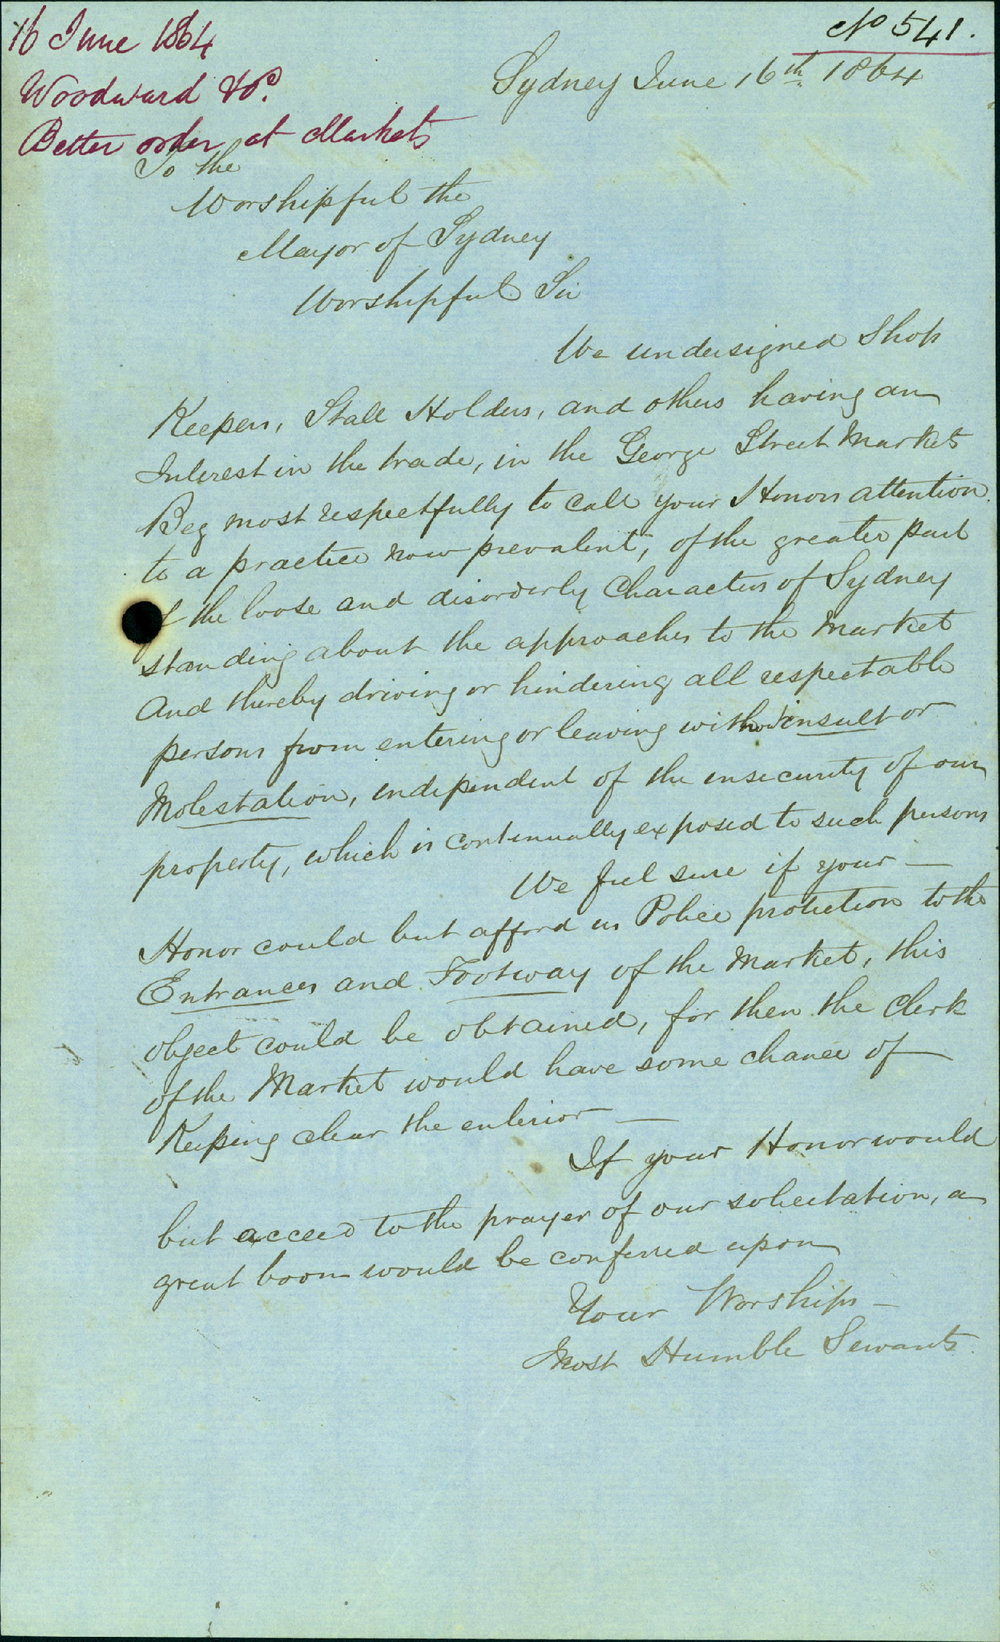 16 June 1864
Woodward &c.
Better order at Markets
No 541.
Sydney June 16th 1864
To the
Worshipful the
Mayor of Sydney
Worshipful Sir
We undersigned Shop
Keepers, Stall Holders, and others having an
Interest in the trade, in the George Street Markets
Beg most respectfully to call your Honors attention
to a practice now prevalent, of the greater part
of the loose and disorderly Characters of Sydney
standing about the approaches to the Market
And thereby driving or hindering all respectable
persons from entering or leaving without insult or
Molestation, independent of the insecurity of our
property, which is continually exposed to such persons
We feel sure if your —
Honor could but afford us Police protection to the
Entrances and Footway of the Market, this
object could be obtained, for then the Clerk
of the Market would have some chance of
Keeping clear the interior —
If your Honor would
but acceed to the prayer of our solicitation, a
great boom would be conferred upon
Your Worships —
Most Humble Servants